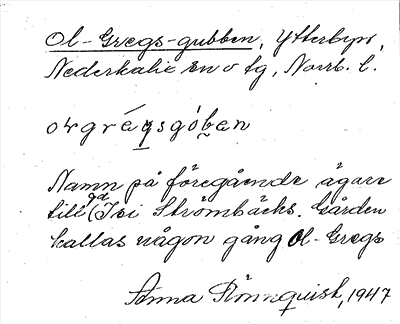 Ol-Gregs-gubben, Ytterbyn,
Nederkalix sn o tg, Norrb. l.
orgrégsgóben
Namn på föregående ägare
till gd Isi Strömbäcks. Gården
kallas någon gång Ol-Gregs
Anna Rönnquist, 1947